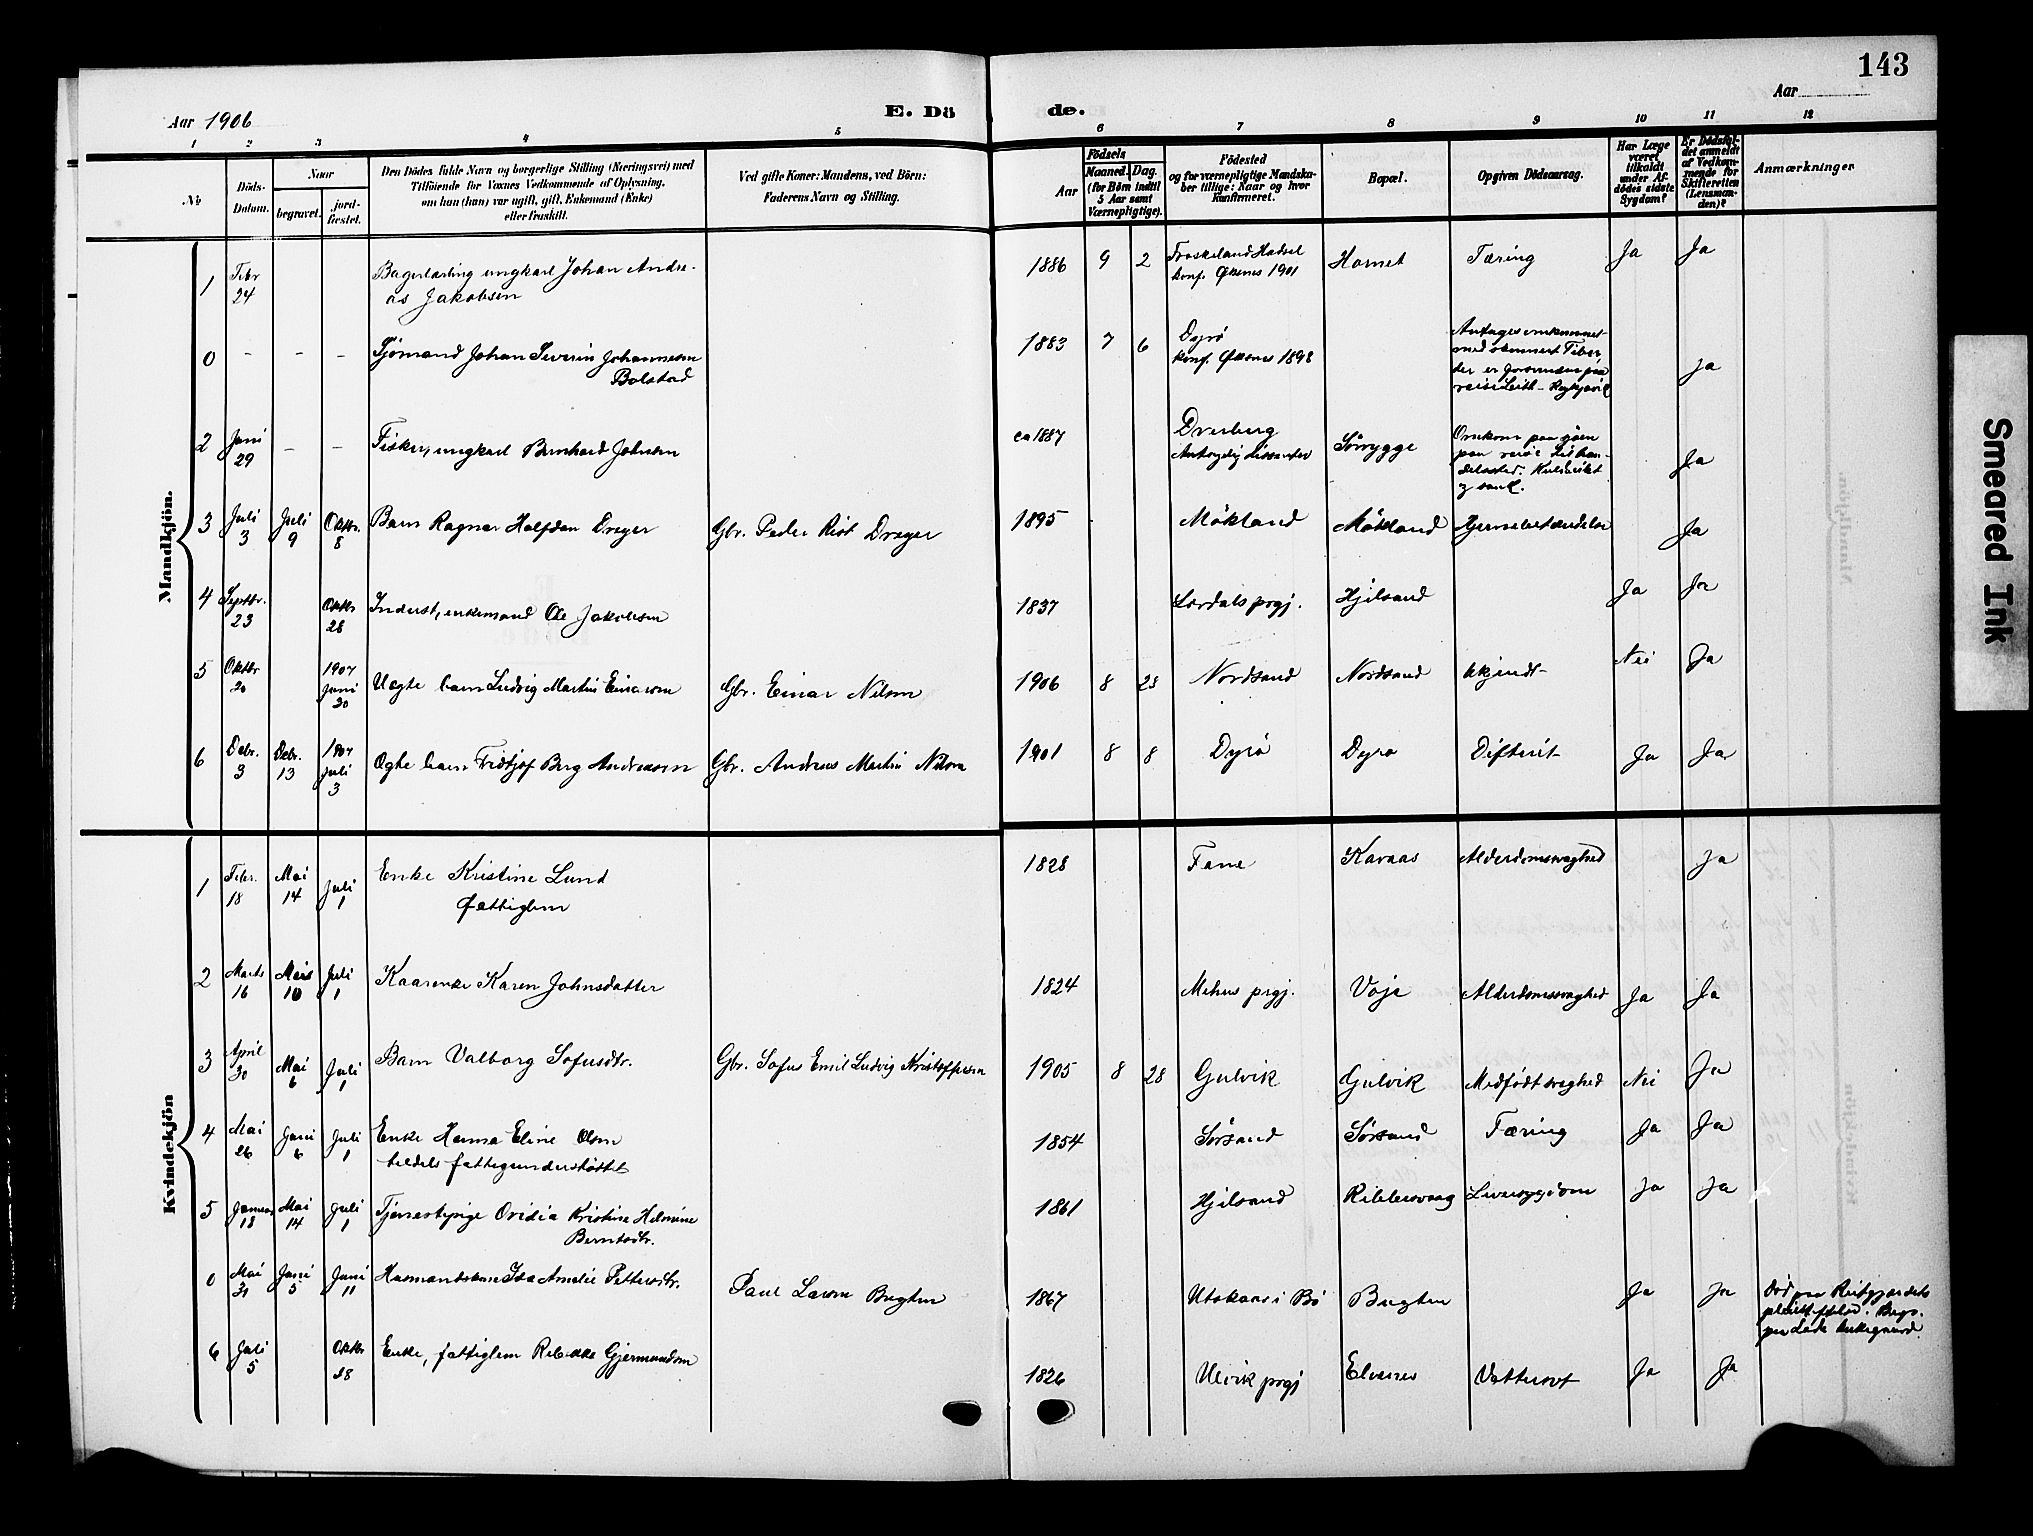 143
Aar 1906
E. Dö
de.
Aar
1 2 3 4 5 6 7 8 9 10 11 12
No
Döds-
Datum.
Naar
begravet.
jord-
fæstet.
Den Dödes fulde Navn og borgerlige Stilling (Næringsvei) med
Tilföiende for Voxnes Vedkommende af Oplysning,
om han (hun) var ugift, gift, Enkemand (Enke)
eller fraskilt.
Ved gifte Koner: Mandens, ved Börn:
Faderens Navn og Stilling.
Födsels
Aar
Maaned. Dag.
(for Börn indtil
5 Aar samt
Værnepligtige).
Födested
og for værnepligtige Mandska-
ber tillige: Naar og hvor
konfirmeret.
Bopæl.
Opgiven Dödsaarsag.
Har Læge
været
tilkaldt
under Af-
dödes sidste
Sygdom?
Er Dödsfal-
det anmeldt
af Vedkom-
mende for
Skifteretten
(Lensman-
den)?
Anmærkninger
Mandkjön.
1 Febr 24 Bagerlærling ungkarl Johan Andre-
as Jakobsen 1886 9 2 Froskeland Hadsel
konf. Øksnes 1901 Homet Tæring Ja Ja
0 - - - Sjömand Johan Severin Johannesen
Bolstad 1883 7 6 Dyrö
konf. Øksnes 1898 Antages omkommet
med skonnert Tiber,
der er forsvunden paa
reise Leith - Reykjavik Ja
2 Juni 29 - - Fisker, ungkarl Bernhard Johnsen ca 1887 Drerberg
Sörrygge Omkom paa sjöen
paa reise
3 Juli 3 Juli 9 Oktbr. 8 Barn Ragnar Halfdan Dreyer Gbr. Peder Rist Dreyer 1895 Mökland Mökland Hjernebetændelse Ja
4 Septbr. 23 Oktbr 28 Inderst, enkemand Ole Jakobsen 1837 Lærdals prgj. Hjilsand Ja Ja
5 Oktbr 20 1907 Juni 30 Uegte barn Ludvig Martin Einarsen Gbr. Einar Nilsen 1906 8 23 Nordsand Nordsand Ukjendt Nei Ja
6 Debr. 3 Debr. 13 1907 Juli 3 Ægte barn Fridtjof Berg Andreassen Gbr. Andreas Martin Nilsen 1901 8 8 Dyrö Dyrö Difterit Ja Ja
Kvindekjön
1 Febr. 18 Mai 14 Juli 1 Enke Kristine Lund
fattiglem 1828 Fane Karaas Alderdomssvaghed Ja
2 Marts 16 Mai 10 Juli 1 Kaarenke Karen Johnsdatter 1824 Mehus prgj. Voje Alderdomssvaghed Ja Ja
3 April 30 Mai 6 Juli 1 Barn Valborg Sofusdtr. Gbr. Sofus Emil Ludvig Kristoffersen 1905 8 28 Gulvik Gulvik Medfödt svaghed Nei Ja
4 Mai 26 Juni 6 Juli 1 Enke Hanna Eline Olsen
tildels fattigunderstöttet 1854 Sörsand Sörsand Tæring Ja Ja
5 Januar 18 Mai 14 Juli 1 Tjenestepige Ovidia Kristine Helmine
Berntsdtr. 1861 Hjilsand Ribbesvaag Liversygdom Ja Ja
0 Mai 31 Juni 5 Juni 11 Husmandskone Ida Amalie Pettersdtr. Paul Larsen Bugten 1867 Utskaar i Bö Bugten Ja Ja Död paa Reitgjerdets
pleiestiftelse. Begr.
paa Lade kirkegaard.
6 Juli 5 Oktbr 28 Enke, fattiglem Rebekka Gjermundsen 1826 Ulvik prgj Elvenes Vattersot Ja Ja
Smeared Ink